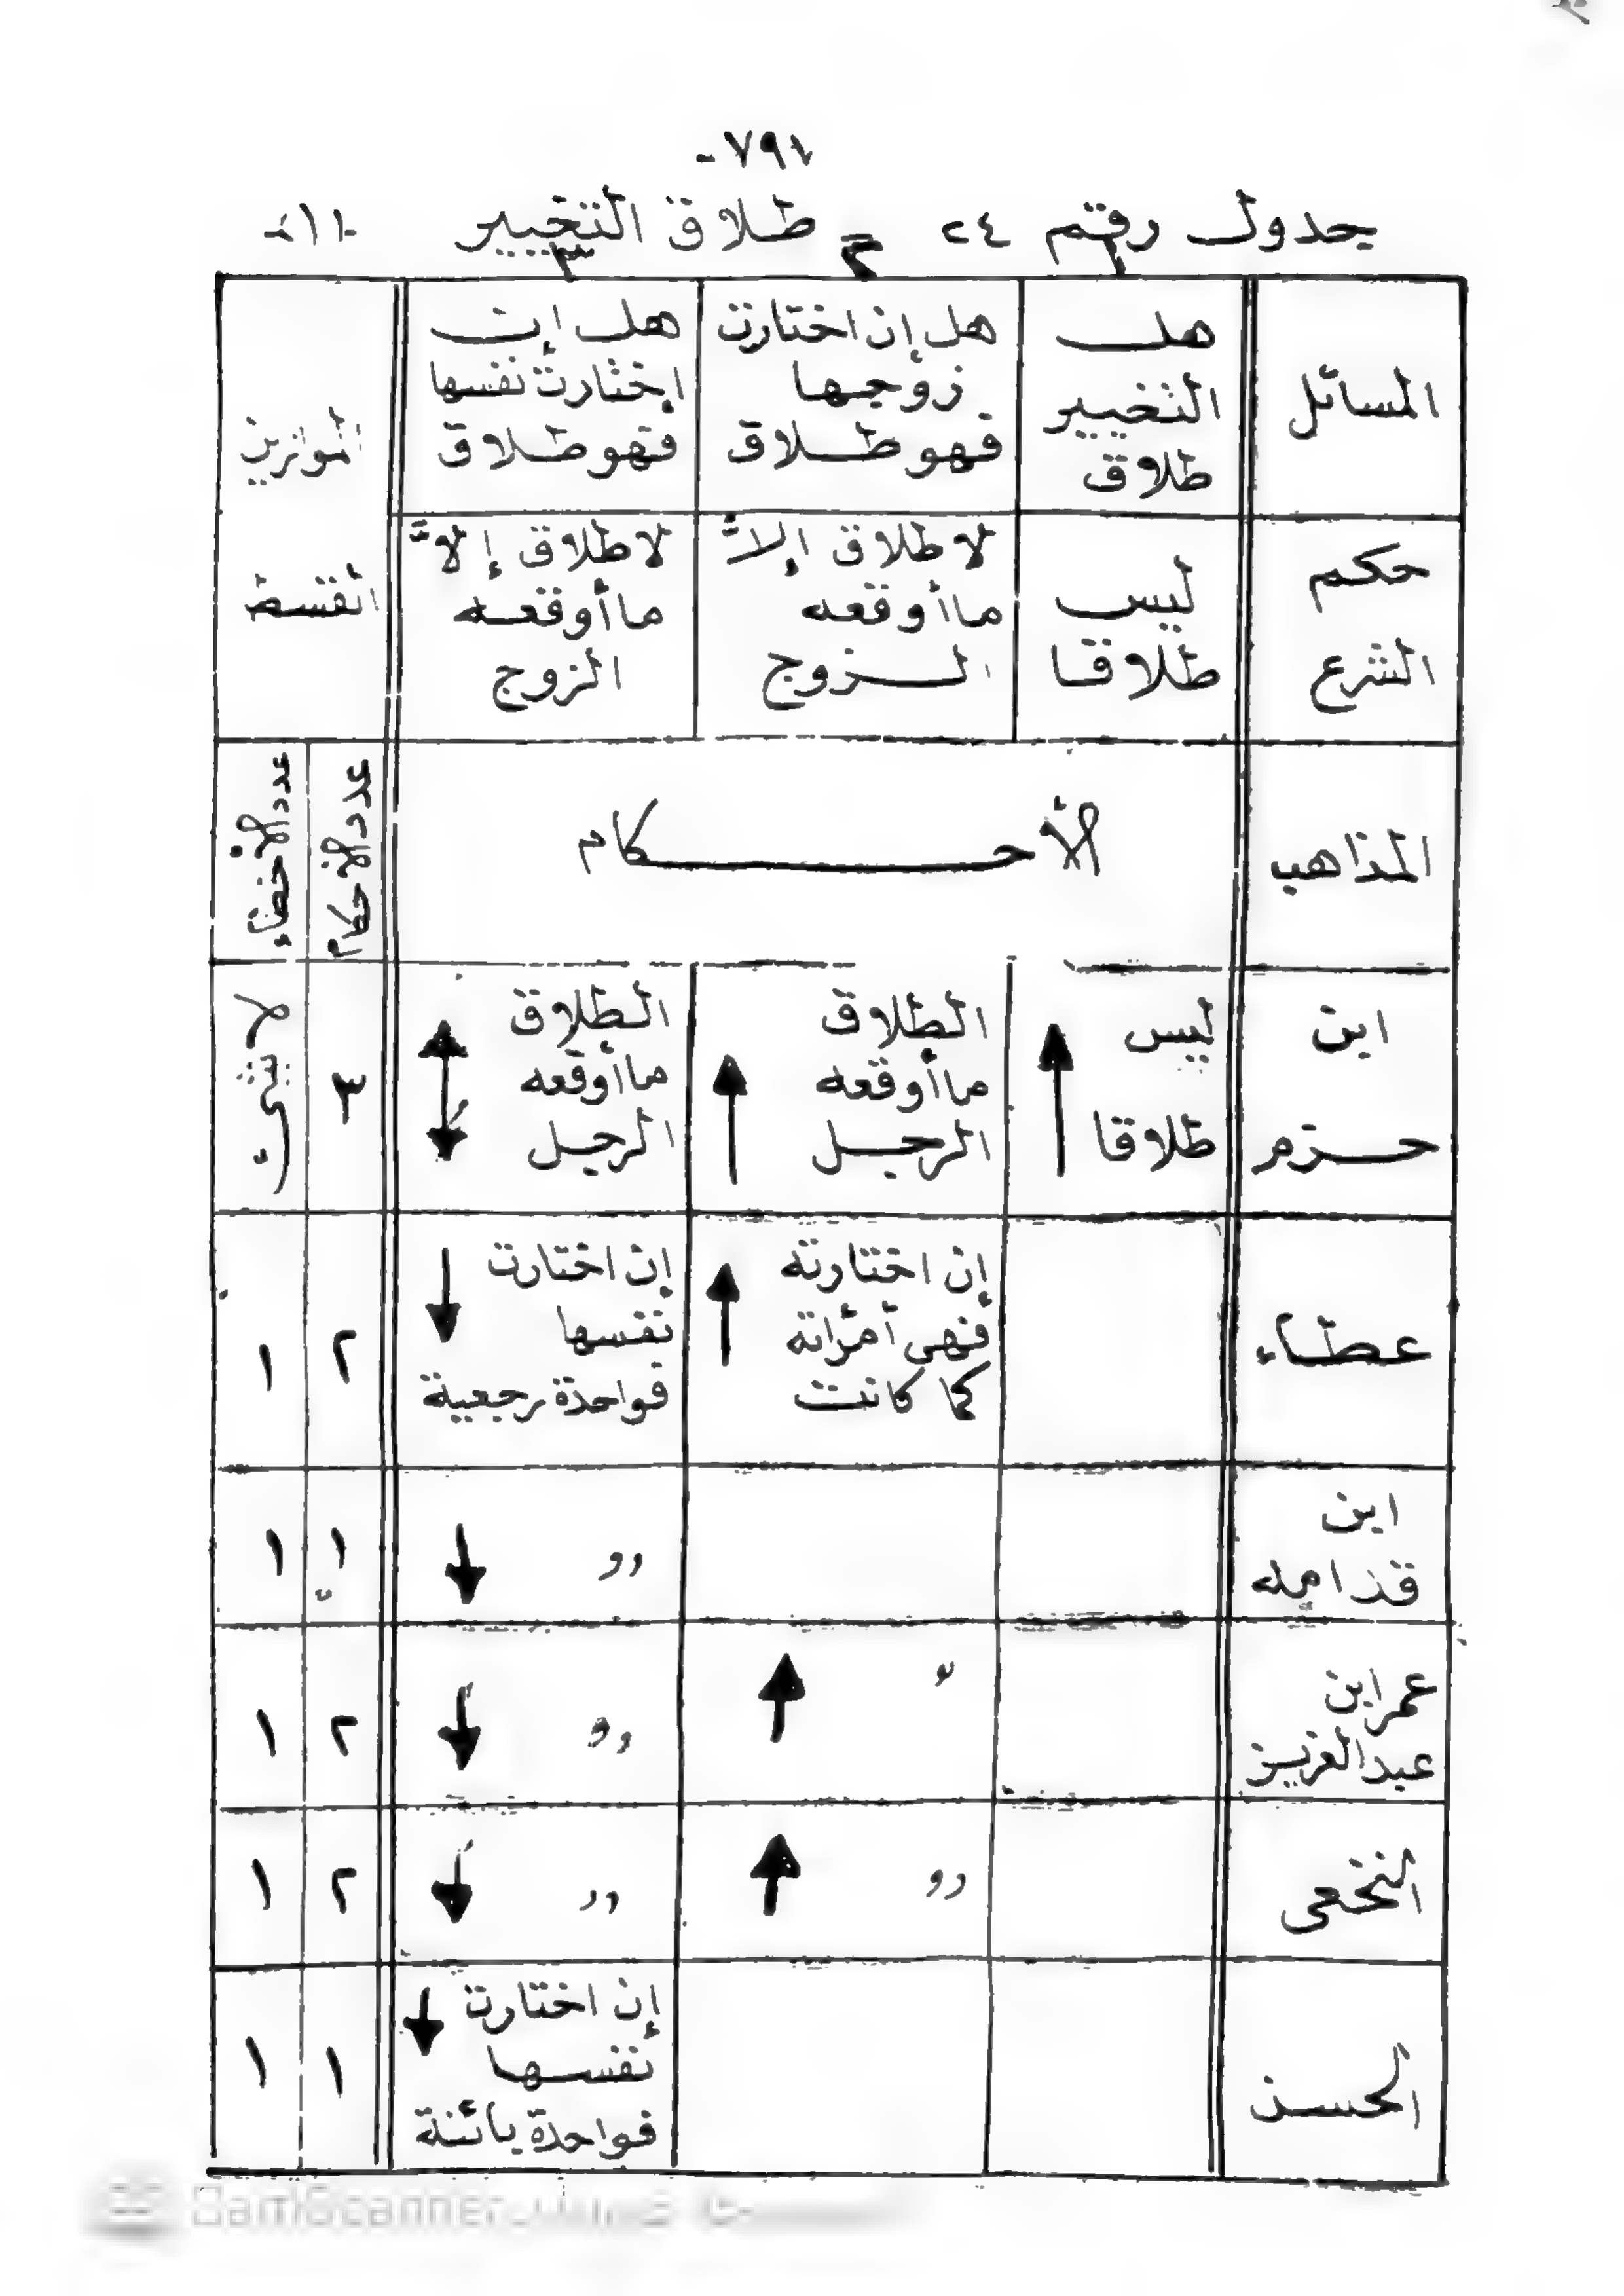 -٧٩١-
جدول رقم ٢٤ = طلاق التخيير -١١-
١ ٢ ٣
المسائل
هل
التخيير
طلاق
هل إن اختارت
زوجها
فهو طلاق
هل إن
اختارت نفسها
فهو طلاق
الموازين
حكم
الشرع
ليس
طلاقا
لا طلاق إلاَّ
ما أوقعه
الزوج
لا طلاق إلاَّ
ما أوقعه
الزوج
القسط
المذاهب
الأحكام
عدد الأحكام
عدد الأخطاء
ابن
حزم
ليس
طلاقا
الطلاق
ما أوقعه
الرجل
الطلاق
ما أوقعه
الرجل
٣
لا شيء
عطاء
إن اختارته
فهي أمرأته
كما كانت
إن اختارت
نفسها
فواحدة رجعية
٢
١
ابن
قدامه
,,
١
١
عمر ابن
عبد العزيز
,,
,,
٢
١
النخعي
,,
,,
٢
١
الحسن
إن اختارت
نفسها
فواحدة بائنة
١
١